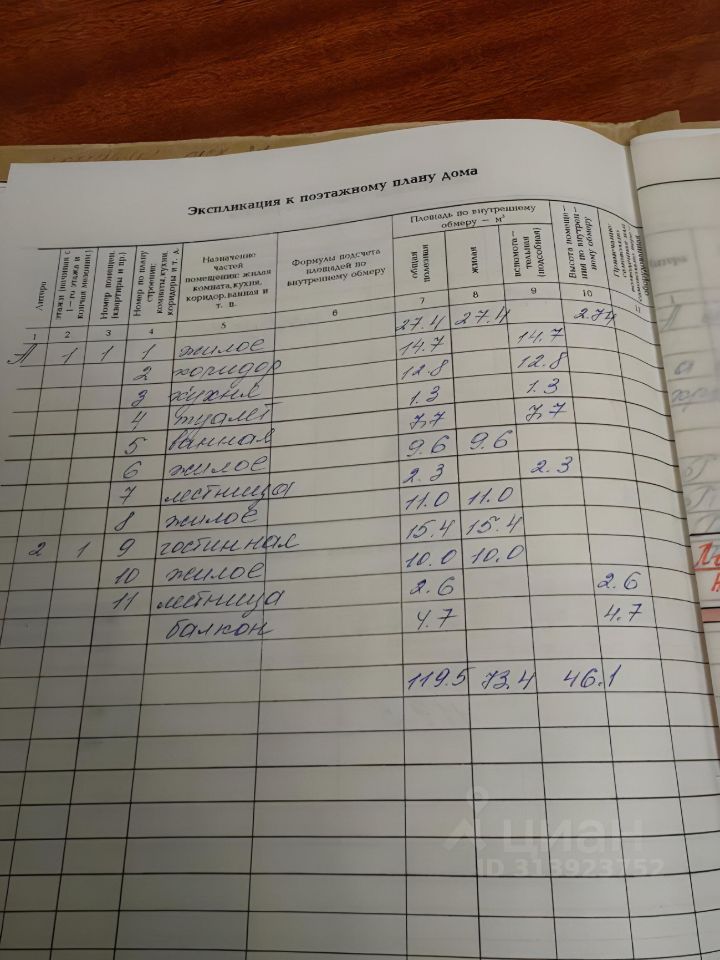 Экспликация к поэтажному плану дома
Литера
этажи (начиная с 1-го этажа и кончая мезонин.)
Номер помещен. (квартиры и пр.)
Номер по плану строения: комнаты, кухни, коридоры и т. д.
Назначение частей помещения: жилая комната, кухня, коридор, ванная и т. п.
Формулы подсчета площадей по внутреннему обмеру
Площадь по внутреннему обмеру — м²
общая полезная
жилая
вспомога-тельная (подсобная)
Высота помеще-ния по внутрен-нему обмеру
1 2 3 4 5 6 7 8 9 10 11
А 1 1 1 жилое 27.4 27.4 2.74
2 коридор 14.7 14.7
3 кухня 12.8 12.8
4 туалет 1.3 1.3
5 ванная 7,7 7,7
6 жилое 9.6 9.6
7 лестница 2.3 2.3
8 жилое 11.0 11.0
2 1 9 гостинная 15.4 15.4
10 жилое 10.0 10.0
11 лестница 2.6 2.6
балкон 4.7 4.7
119.5 73.4 46.1
циан
ID 313923752